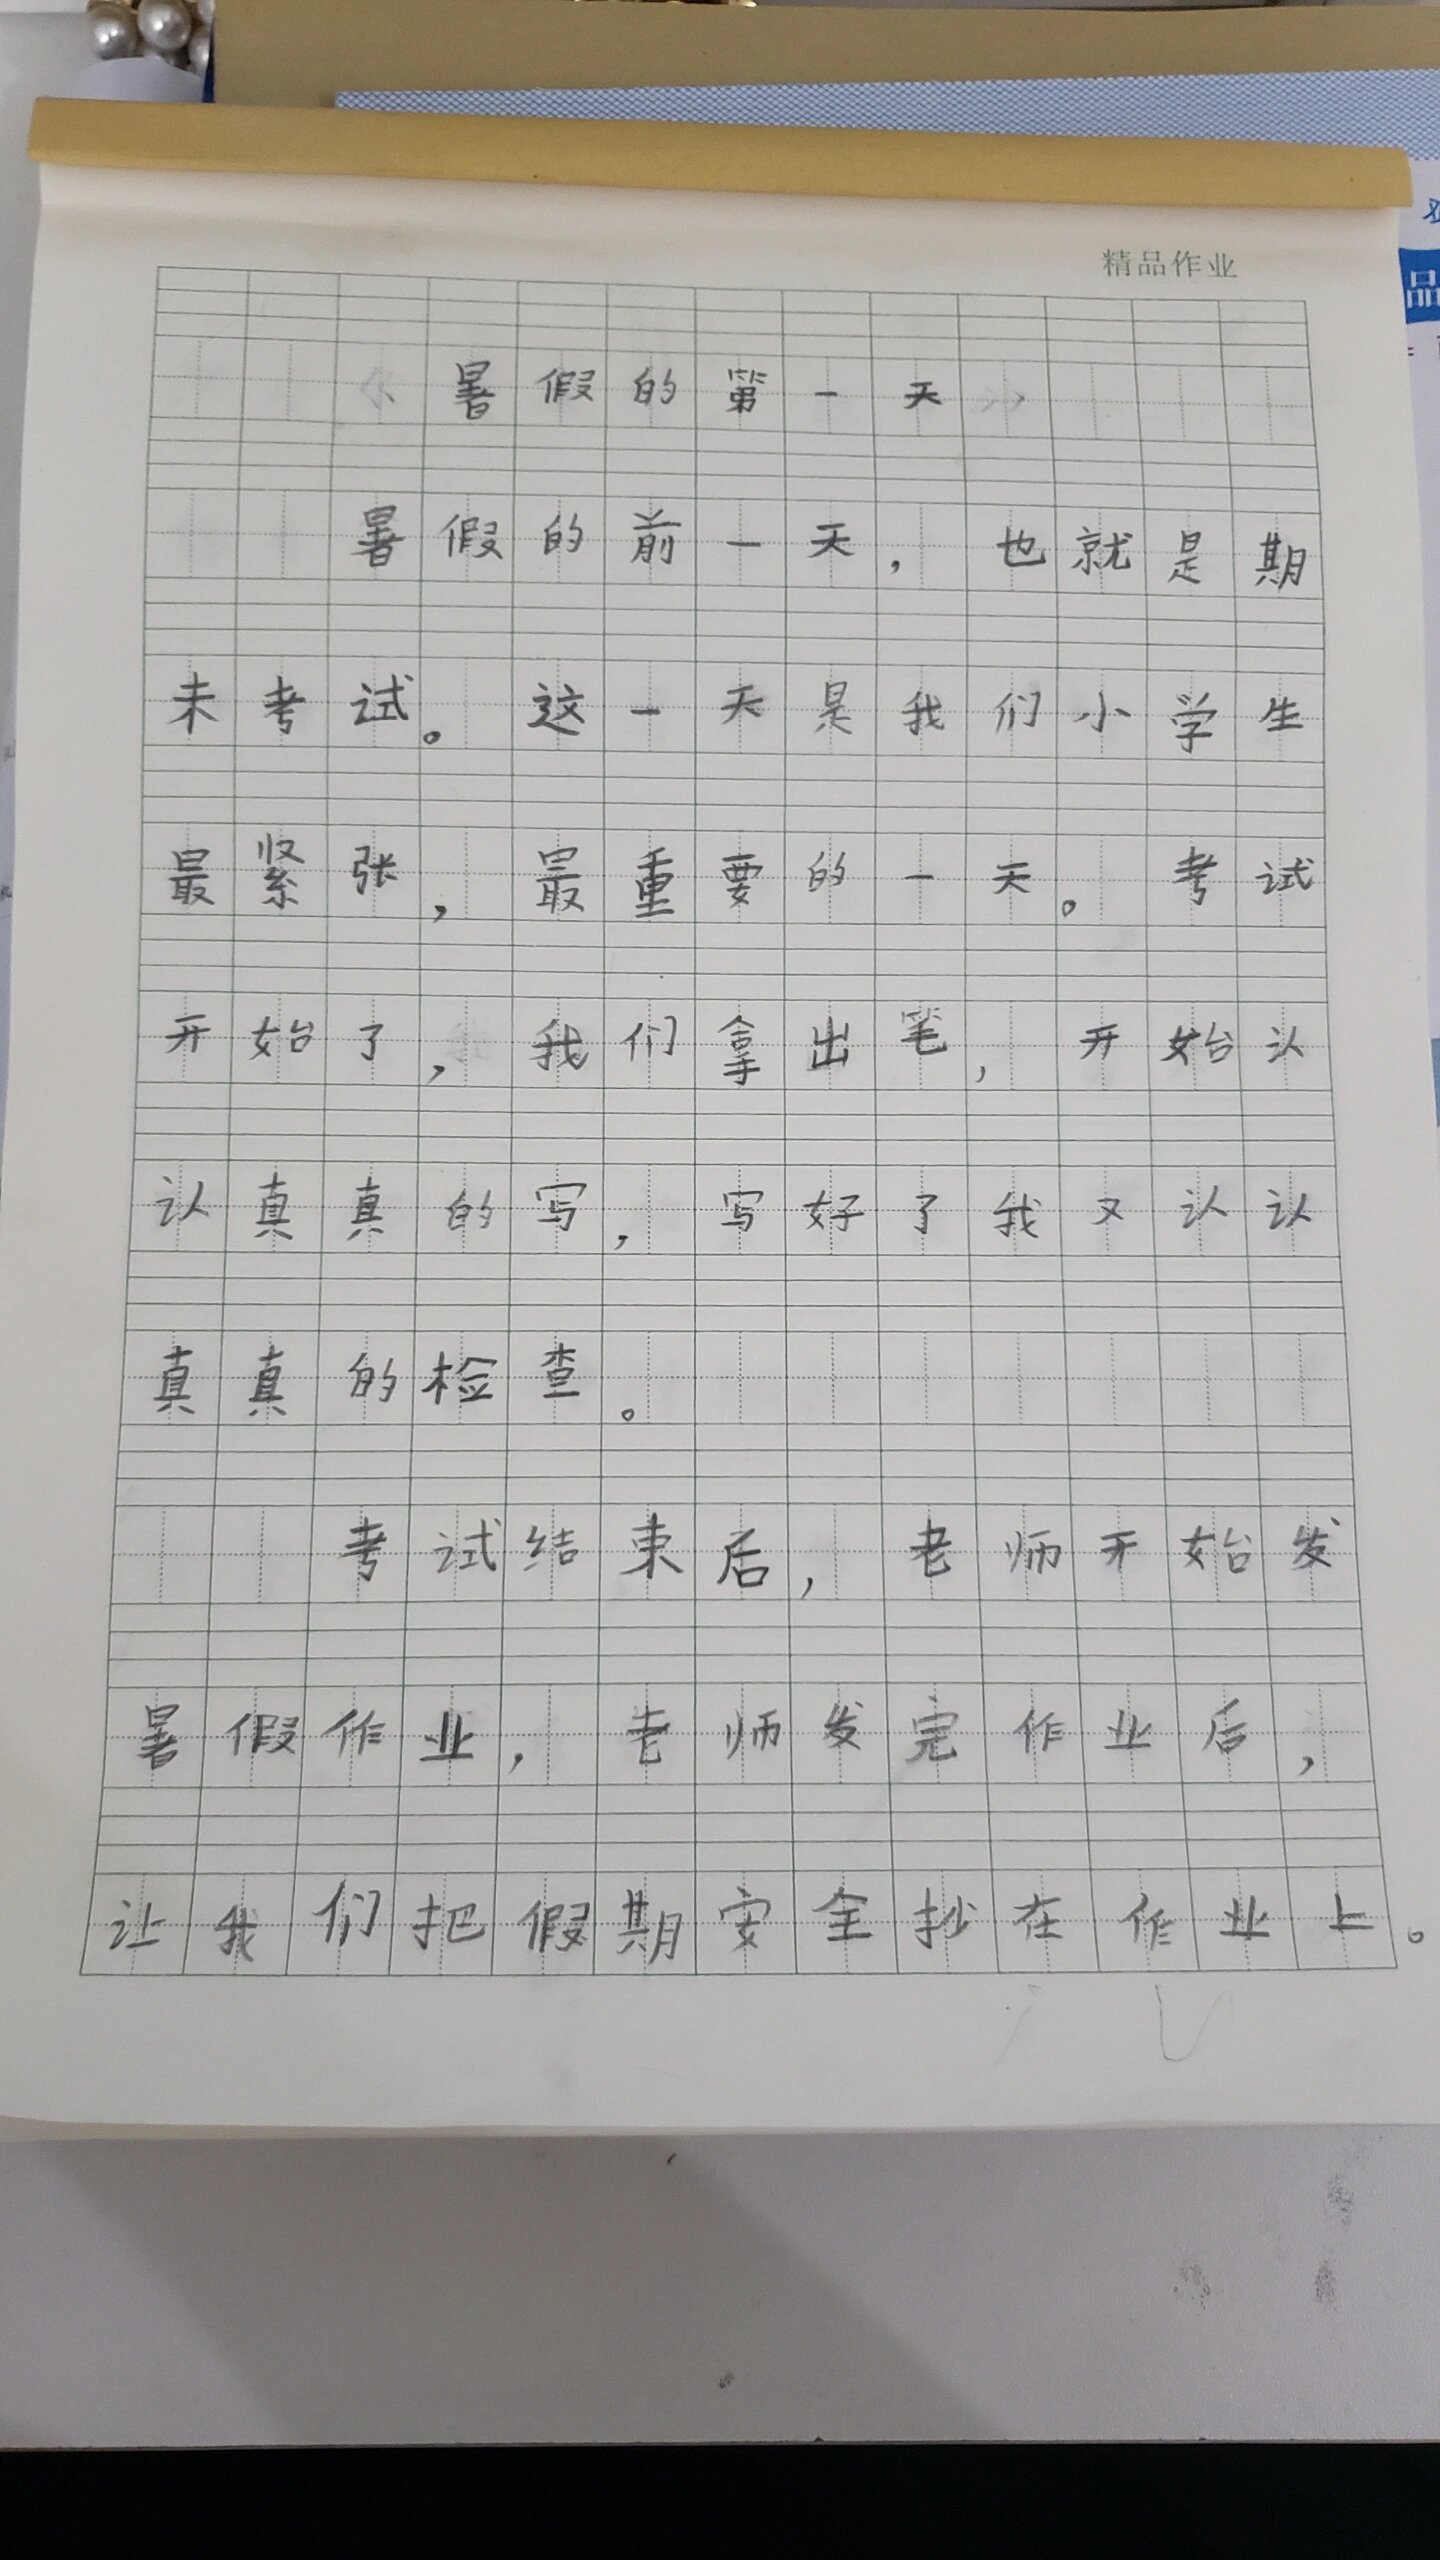 精品作业
《暑假的第一天》
暑假的前一天，也就是期
未考试。这一天是我们小学生
最紧张，最重要的一天。考试
开始了，我们拿出笔，开始认
认真真的写，写好了我又认认
真真的检查。
考试结束后，老师开始发
暑假作业，老师发完作业后，
让我们把假期安全抄在作业上。
品